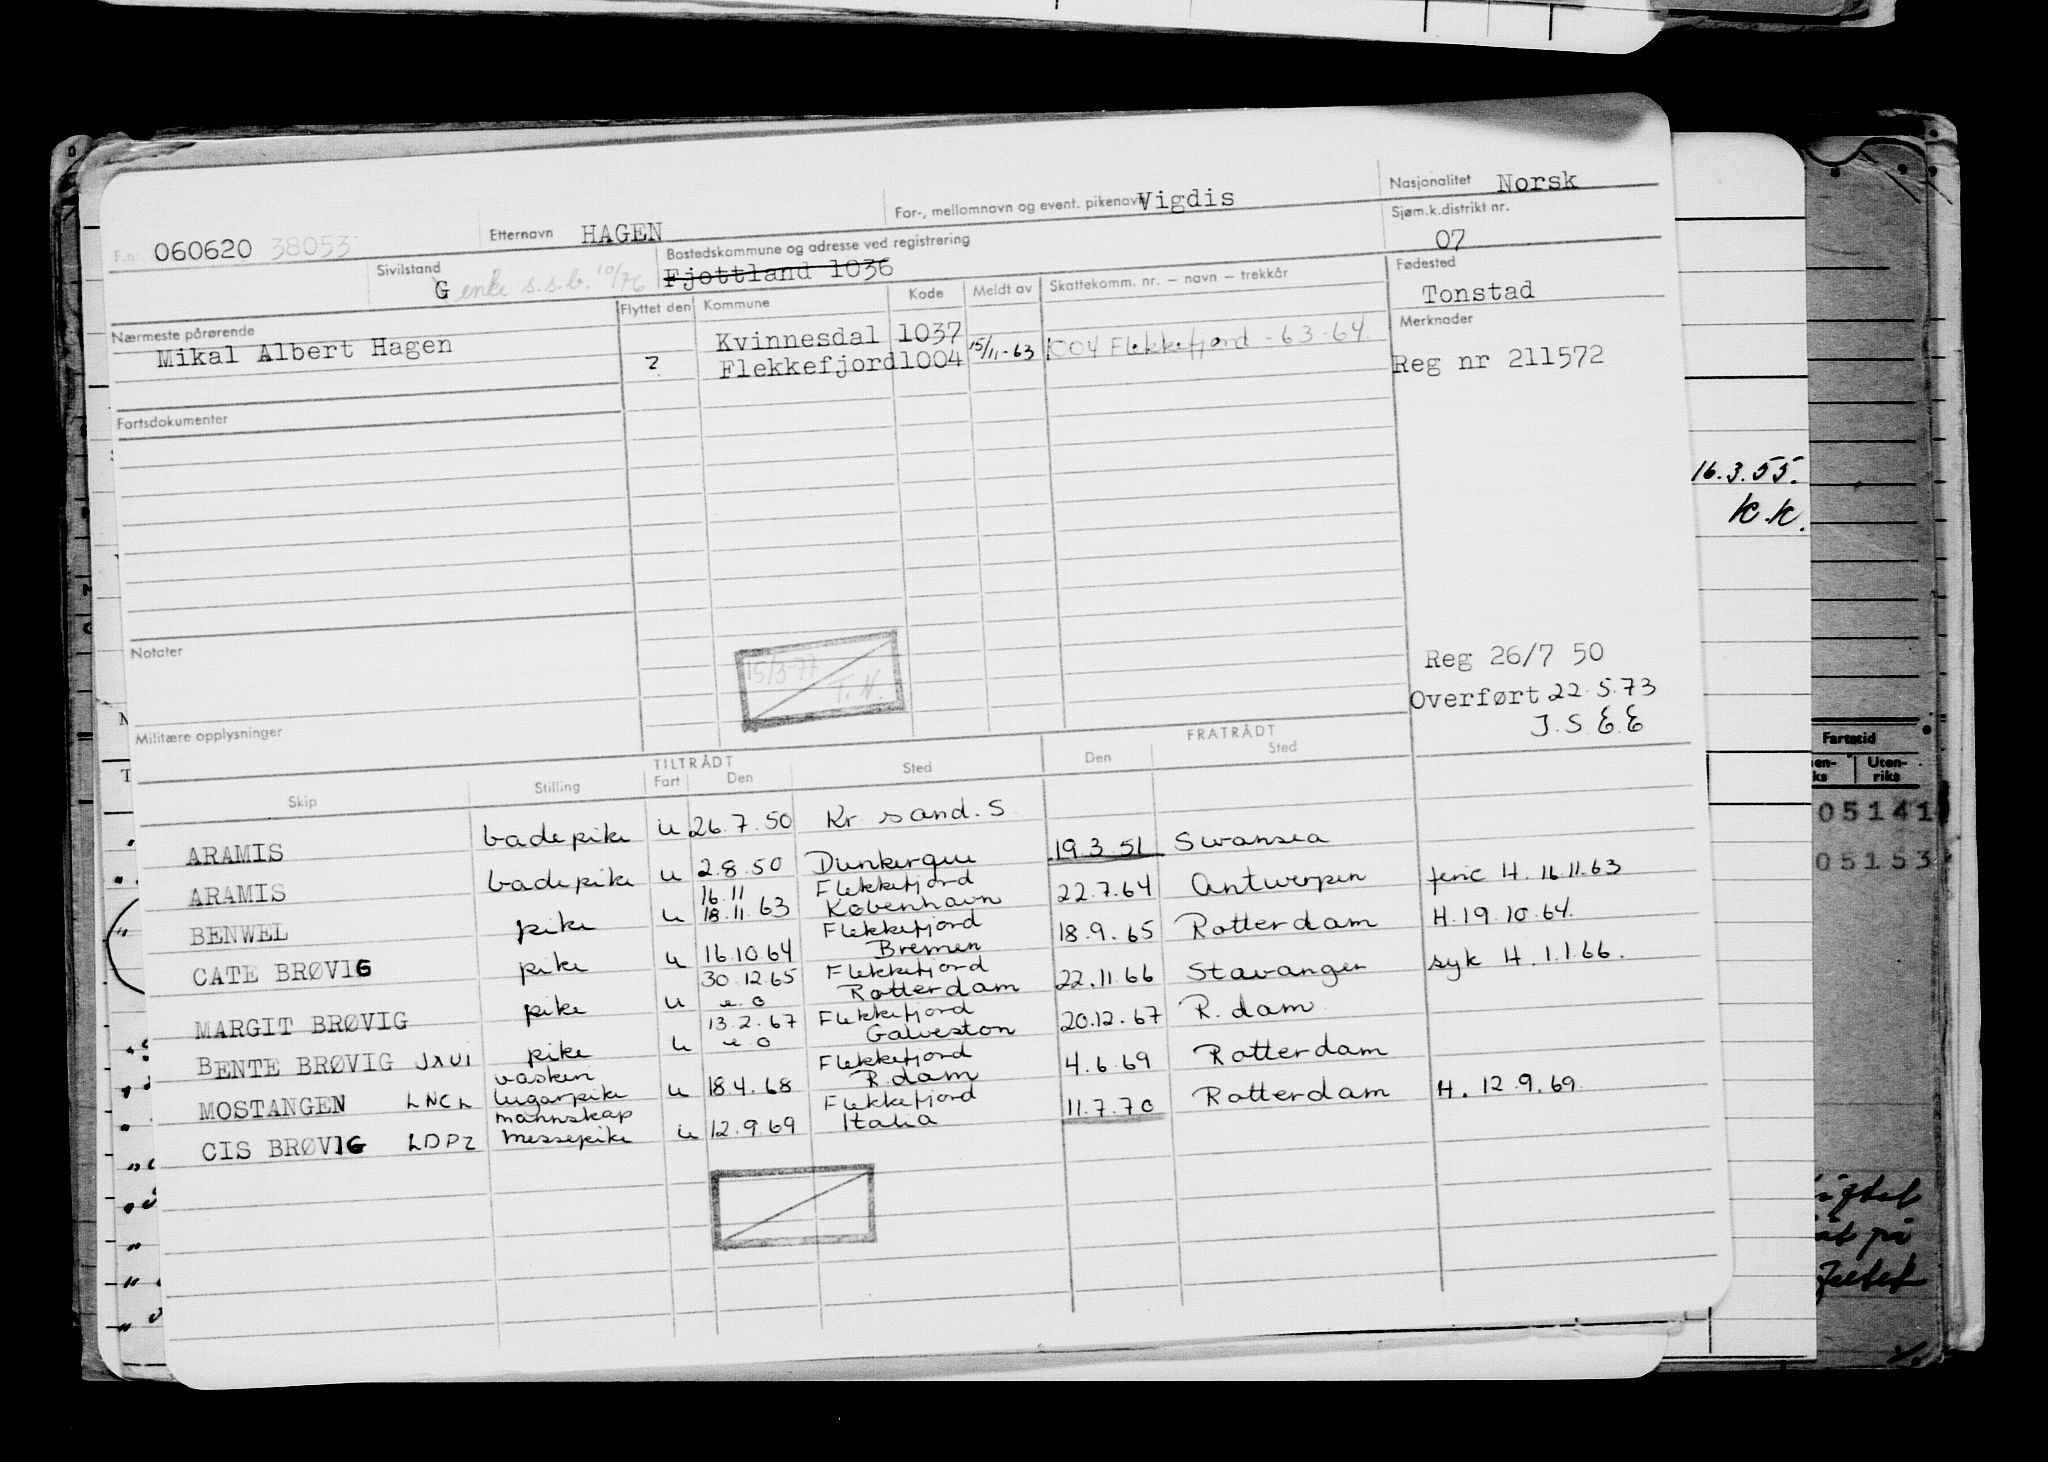 F.nr. 060620 38053 Etternavn HAGEN For-, mellomnavn og event. pikenavn Vigdis Nasjonalitet Norsk
Sivilstand G enke s.s.b. 10/76 Bostedskommune og adresse ved registrering Fjottland 1036 Sjøm.k.distrikt nr. 07
Nærmeste pårørende Flyttet den Kommune Kode Meldt av Skattekomm. nr. – navn – trekkår Fødested Tonstad
Mikal Albert Hagen Kvinnesdal 1037 Merknader
? Flekkefjord 1004 15/11-63 1004 Flekkefjord - 63-64. Reg nr 211572
Fartsdokumenter
16.3.55.
K.K.
Notater
15/3-77
T.N.
Reg 26/7 50
Overført 22.5.73
J.S E.E
Militære opplysninger
TILTRÅDT FRATRÅDT
Skip Stilling Fart Den Sted Den Sted
ARAMIS badepike u 26.7.50 Kr sand. S
ARAMIS badepike u 2.8.50 Dunkerque 19.3.51 Swansea
16.11 Flekkefjord
BENWEL pike u 18.11.63 København 22.7.64 Antwerpen ferie H. 16.11.63
Flekkefjord
CATE BRØVIG pike u 16.10.64 Bremen 18.9.65 Rotterdam H. 19.10.64.
30.12.65 Flekkefjord
MARGIT BRØVIG pike u e.o Rotterdam 22.11.66 Stavanger syk H. 1.1.66.
13.2.67 Flekkefjord
BENTE BRØVIG JXUI pike u e.o Galveston 20.12.67 R.dam
vaskeri Flekkefjord
MOSTANGEN LNCL lugarpike u 18.4.68 R.dam 4.6.69 Rotterdam
mannskap Flekkefjord
CIS BRØVIG LDPZ messepike u 12.9.69 Italia 11.7.70 Rotterdam H. 12.9.69
Fartstid
Uten-
riks
05141
05153